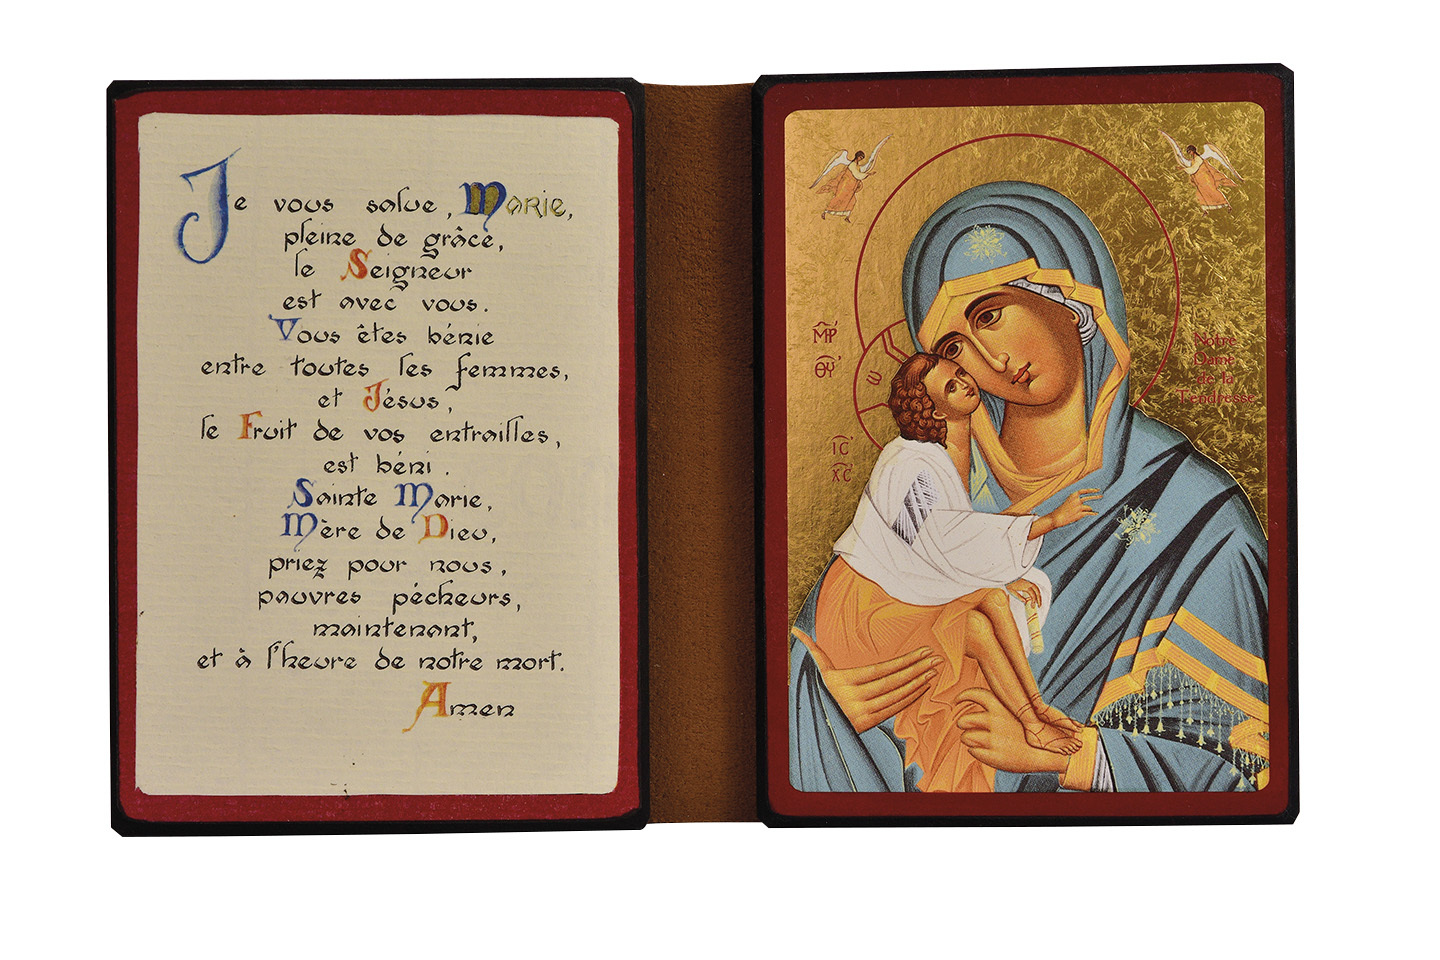 Je vous salue, Marie,
pleine de grâce,
le Seigneur
est avec vous.
Vous êtes bénie
entre toutes les femmes,
et Jésus,
le Fruit de vos entrailles,
est béni.
Sainte Marie,
Mère de Dieu,
priez pour nous,
pauvres pécheurs,
maintenant,
et à l'heure de notre mort.
Amen
ΜΡ
ΘΥ
ω
ΙC
ΧC
Notre
Dame
de la
Tendresse